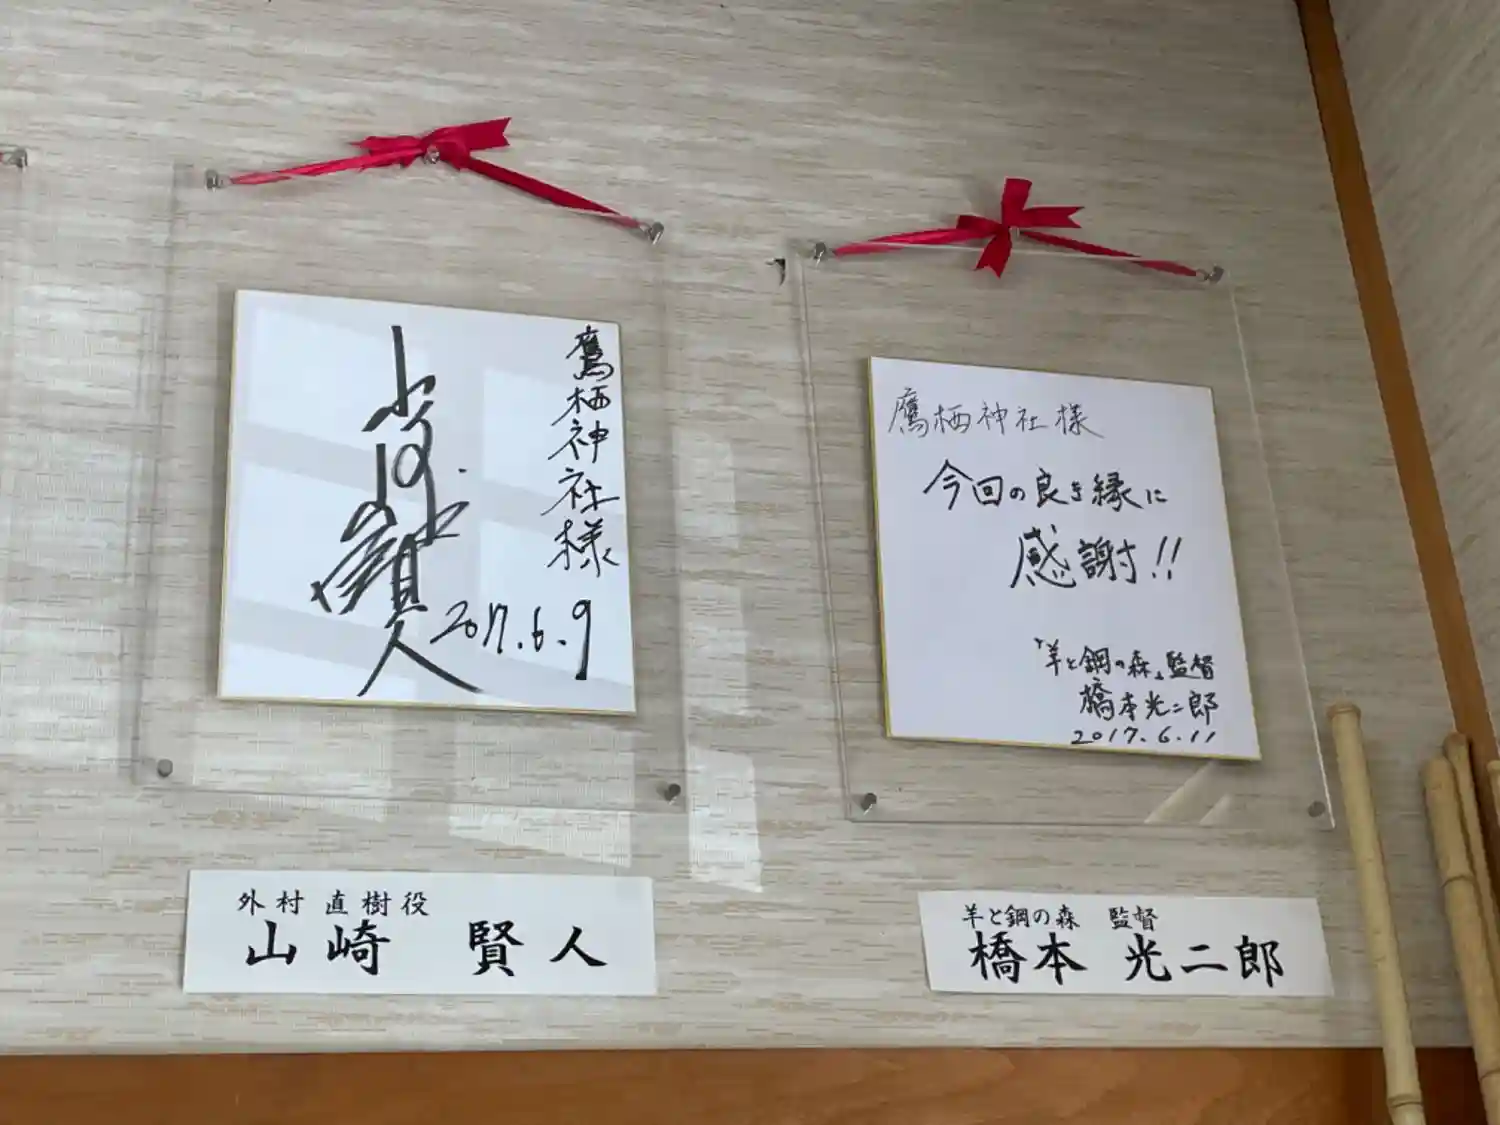 鷹栖神社様
山﨑賢人
2017.6.9
外村 直樹役
山﨑 賢人
鷹栖神社様
今回の良き縁に
感謝!!
『羊と鋼の森』監督
橋本光二郎
2017.6.11
羊と鋼の森 監督
橋本 光二郎